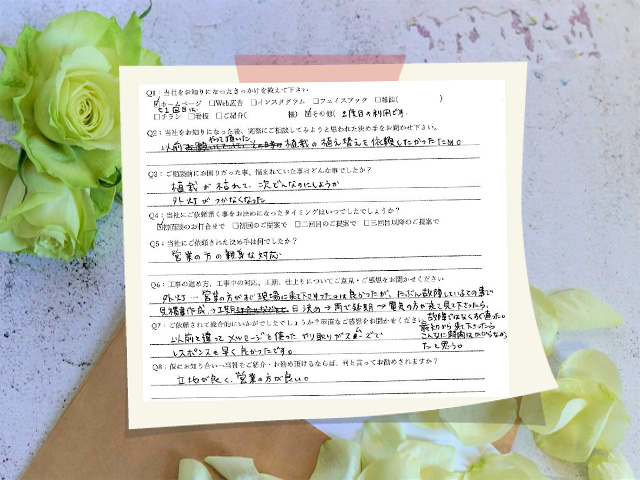 Q1：当社をお知りになったきっかけを教えて下さい
☑ホームページ □Web広告 □インスタグラム □フェイスブック □雑誌( )
1回目に
□チラシ □看板 □ご紹介( 様) ☑その他( 2度目の利用です。
Q2：当社をお知りになった後、実際にご相談してみようと思われた決め手をお聞かせ下さい。
やって頂いた
以前 植栽の植え替えを依頼したかったため。
Q3：ご相談前にお困りだった事、悩まれていた事はどんな事でしたか？
植栽が枯れて、次どんなのにしようか
外灯がつかなくなった
Q4：当社にご依頼頂く事をお決めになったタイミングはいつでしたでしょうか？
☑初面談のお打合せで □初回のご提案で □二回目のご提案で □三回目以降のご提案で
Q5：当社にご依頼された決め手は何でしたか？
営業の方の親身な対応
Q6：工事の進め方、工事中の対応、工期、仕上りについてご意見・ご感想をお聞かせください
外灯…営業の方がすぐ現場に来て下さったのは良かったが、たぶん故障しているとの事で
見積作成→工期 日決め→雨で延期→電気の方が来て見て下さったら、
故障ではなくすぐ直った。
最初から来て下さったら
こんなに時間はかからなかっ
たと思う。
Q7：ご依頼されて総合的にいかがでしたでしょうか？率直なご感想をお聞かせください
以前と違ってメッセージを使ったやり取りがスムーズで
レスポンスも早く良かったです。
Q8：仮にお知り合いへ当社をご紹介・お勧め頂けるならば、何と言ってお勧めされますか？
立地が良く、営業の方が良い。